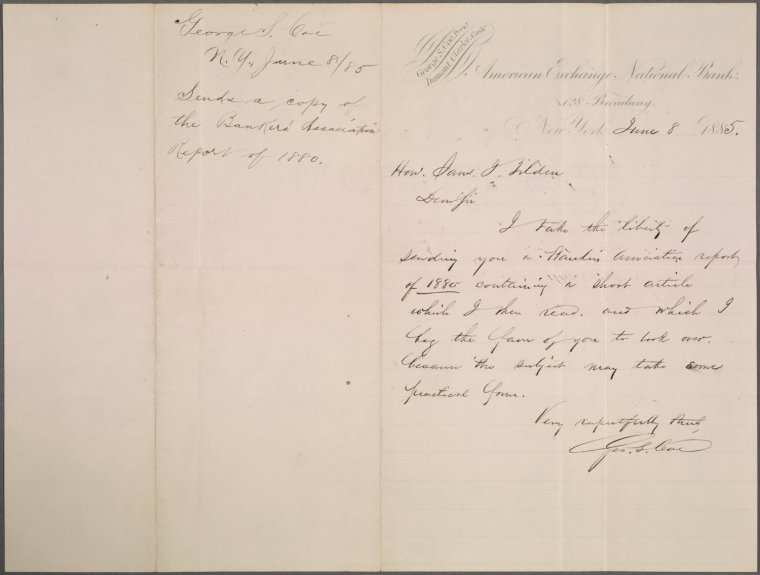 George S. Coe
N.Y., June 8/85
Sends a copy of
the Bankers' Association
Report of 1880.
George S. Coe, Prest
Dumont Clarke, Cashr
American Exchange National Bank.
128 Broadway
New York June 8 1885.
Hon. Saml J. Tilden
Dear Sir
I take the liberty of
sending you a Bankers Association report
of 1880 containing a short article
which I then read, and which I
beg the favor of you to look over,
because the subject may take some
practical form.
Very respectfully
Geo. S. Coe